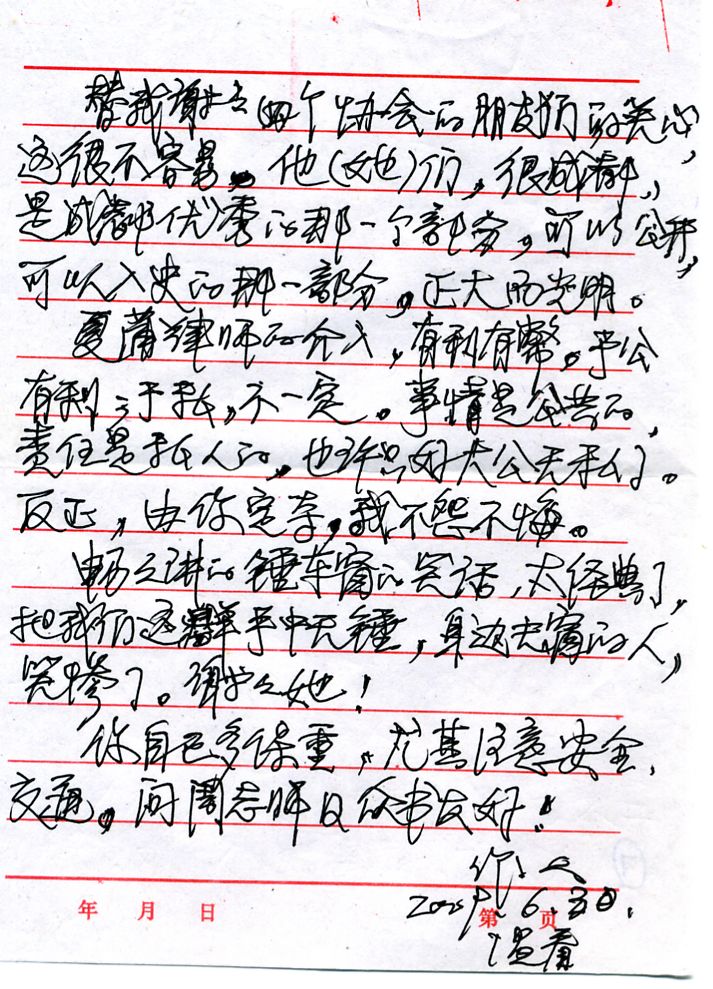 替我谢谢四个协会的朋友们的关心,
这很不容易。他(她)们,很成都,
是成都优秀的那一个部分,可以公开,
可以入史的那一部分,正大而光明。
夏 律师的介入,有利有弊,于公
有利;于私,不一定。事情是公共的,
责任是私人的,也许只好大公无私了。
反正,由你定夺,我不怨不悔。
讲的锤车窗的笑话,太经典了,
把我们这群手中无锤,身边无窗的人,
笑惨了。谢谢她!
你自己多保重,尤其注意安全、
交通。问 志晖及众书友好!
作人
6.30.
温
年 月 日 第 页